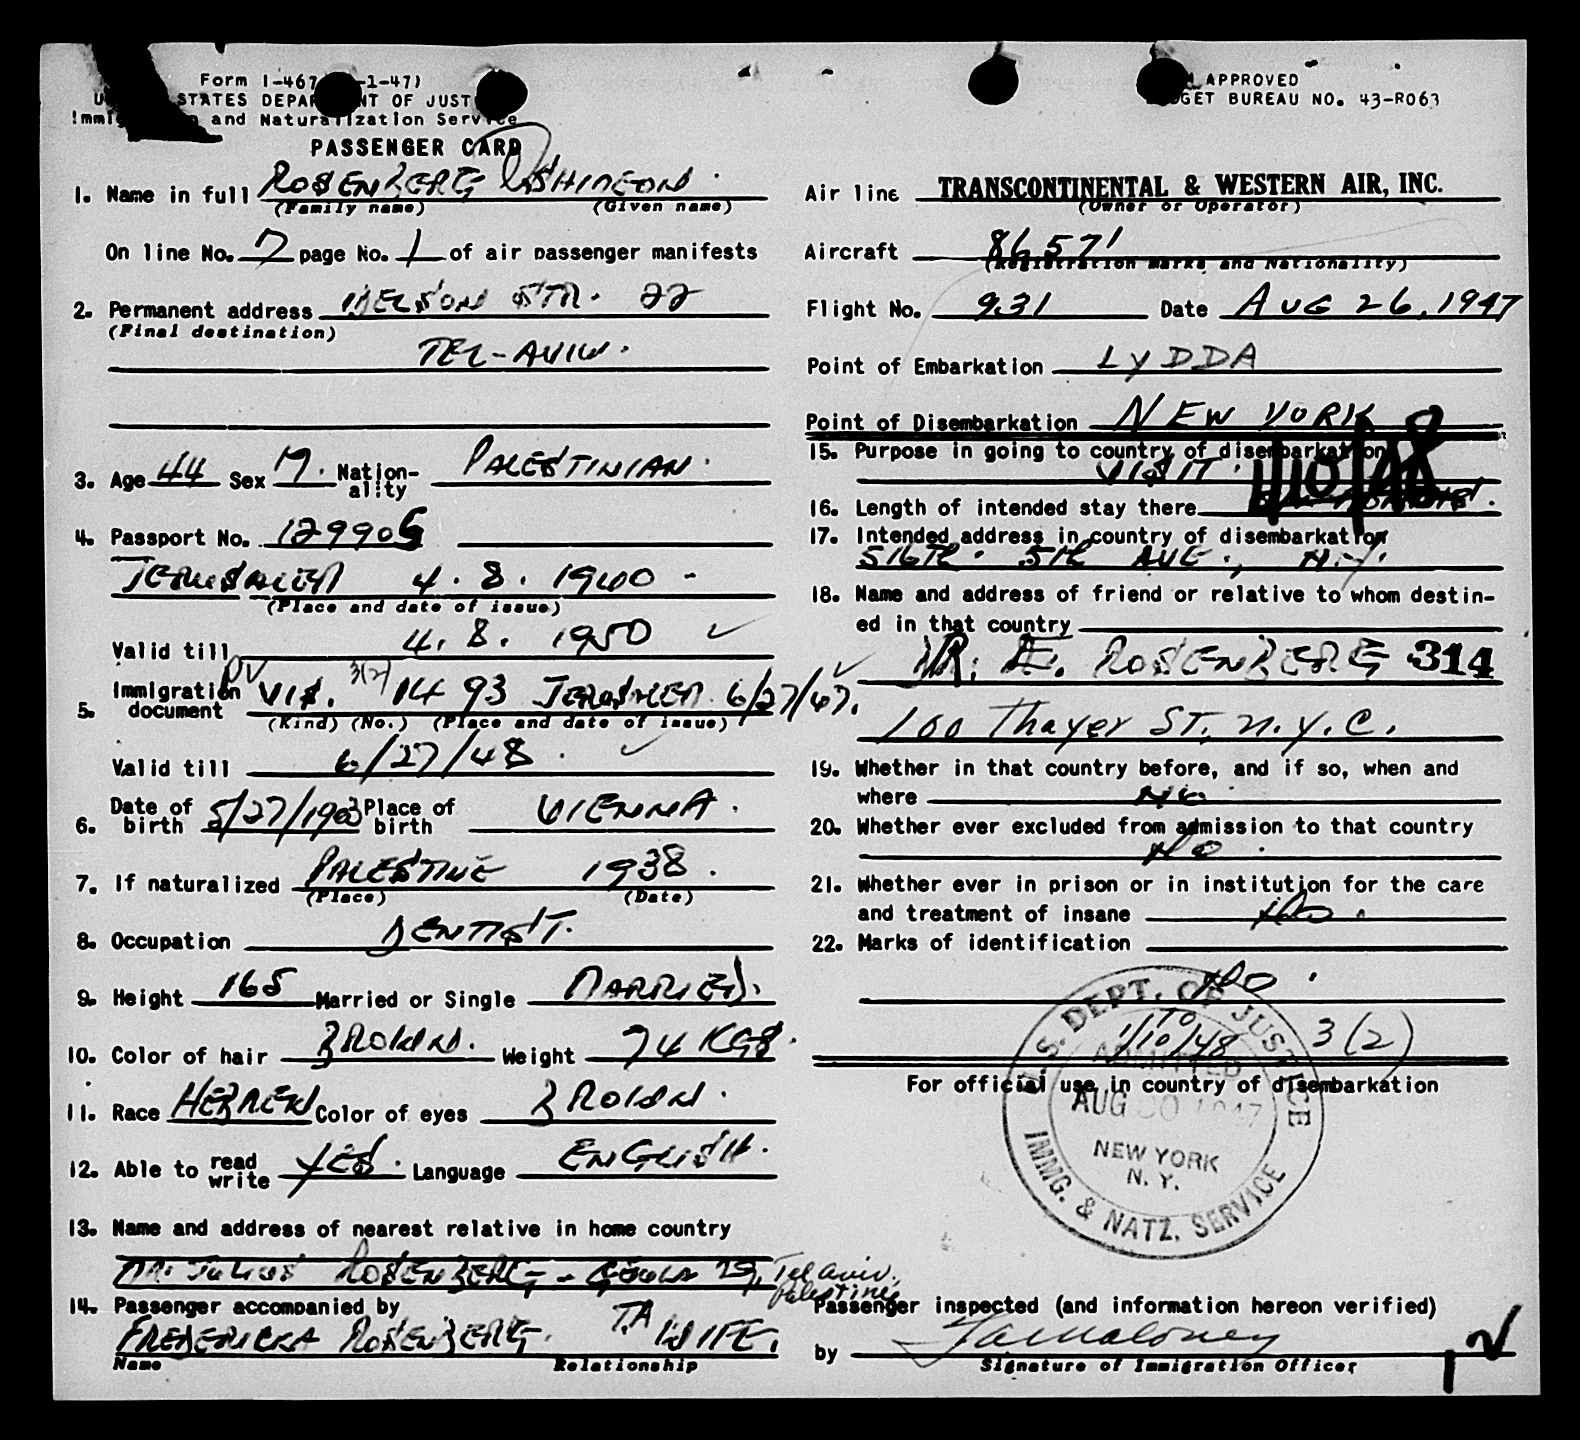 Form I-467 -1-47)
STATES DEPA NT OF JUST
and Naturalization Service
PASSENGER CARD
1. Name in full ROSENBERG SHIMEON.
(Family name) (Given name)
On line No. 7 page No. 1 of air passenger manifests
2. Permanent address STR. 22
(Final destination)
TEL-AVIW.
3. Age 44 Sex M. Nation-ality PALESTINIAN.
4. Passport No. 129906
JERUSALEM 4.8.1940 -
(Place and date of issue)
Valid till 4.8.1950 ✓
5. Immigration document PV VIS. 3(2) 1493 JERUSALEM 6/27/47.
(Kind) (No.) (Place and date of issue)
Valid till 6/27/48. ✓
6. Date of birth 5/27/1903 Place of birth VIENNA.
7. If naturalized PALESTINE 1938.
(Place) (Date)
8. Occupation DENTIST.
9. Height 165 Married or Single MARRIED.
10. Color of hair BROWN. Weight 74 KGS.
11. Race HEBREW Color of eyes BROWN.
12. Able to read write YES. Language ENGLISH.
13. Name and address of nearest relative in home country
DR. JULIUS ROSENBERG - Tel Aviv,
Palestine
14. Passenger accompanied by
FREDERICKA ROSENBERG. WIFE.
Name Relationship
APPROVED
GET BUREAU NO. 43-R063
Air line TRANSCONTINENTAL & WESTERN AIR, INC.
(Owner or Operator)
Aircraft 86571
(Registration marks and Nationality)
Flight No. 931 Date AUG 26, 1947
Point of Embarkation LYDDA
Point of Disembarkation NEW YORK
15. Purpose in going to country of disembarkation
VISIT. 1/10/48
16. Length of intended stay there MONTHS.
17. Intended address in country of disembarkation
516TH. 5TH AVE., N.Y.
18. Name and address of friend or relative to whom destin-
ed in that country
✓ DR. E. ROSENBERG 314
100 Thayer ST. N.Y.C.
19. Whether in that country before, and if so, when and
where NO.
20. Whether ever excluded from admission to that country
NO.
21. Whether ever in prison or in institution for the care
and treatment of insane NO.
22. Marks of identification
NO.
U.S. DEPT. OF JUSTICE
TO
1/10/48 3(2)
ADMITTED
For official use in country of disembarkation
AUG 30 1947
NEW YORK
N.Y.
IMMG. & NATZ. SERVICE
Passenger inspected (and information hereon verified)
by
Signature of Immigration Officer